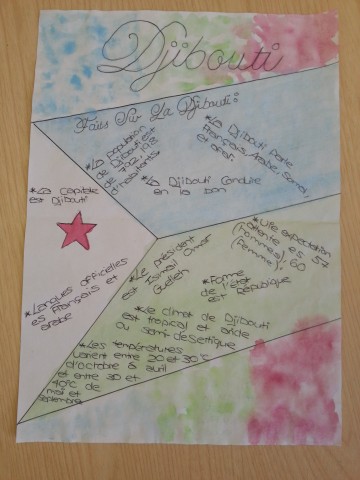 Djibouti
Faits Sur La Djibouti:
*La population
de Djibouti est
de 792,198
d'habitants
*La Djibouti Parle
Français, Arabe, Somali,
et afar.
*La Djibouti Conduire
en la bon
*La Capitale
est Djibouti
*Langues officielles
es Français et
arabe
*Le président
est Ismail Omar
Guelleh
*Vite
attente es 57
(hommes), 60
(femme)
*Forme
de l'état
est République
*le climat de Djibouti
est tropical et aride
ou semi-désertique
*Les températures
varient entre 20 et 30°C
d'octobre à avril
et entre 30 et
40°C de
mai et
septembre